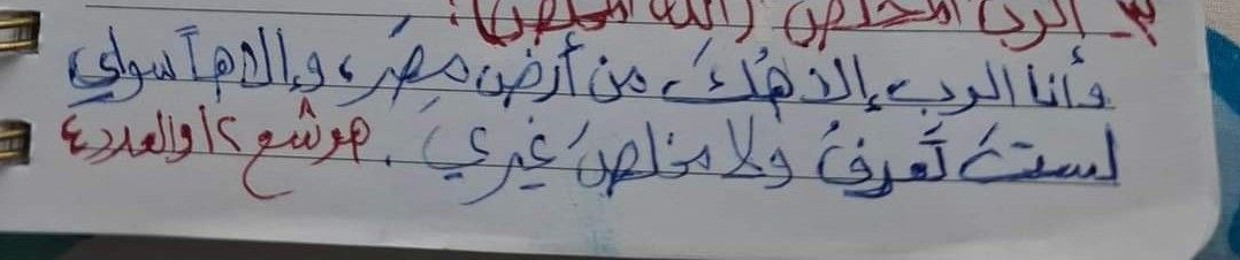 ٣- الرب المخلص (الله المخلص):
وأنا الرب إلاهُكَ من أرضِ مِصرَ، وإلاهاً سواي
لستَ تَعرفُ ولا مخلصَ غيري. هوشع ١٣ والعدد ٤